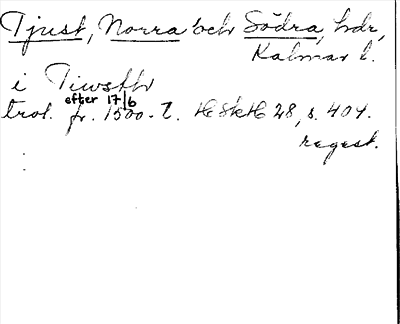 Tjust, Norra och Södra, hdr,
Kalmar l.
i Tiwsthr
efter 17/6
trol. fr. 1500-t. HSkH 28, s. 404.
regest.